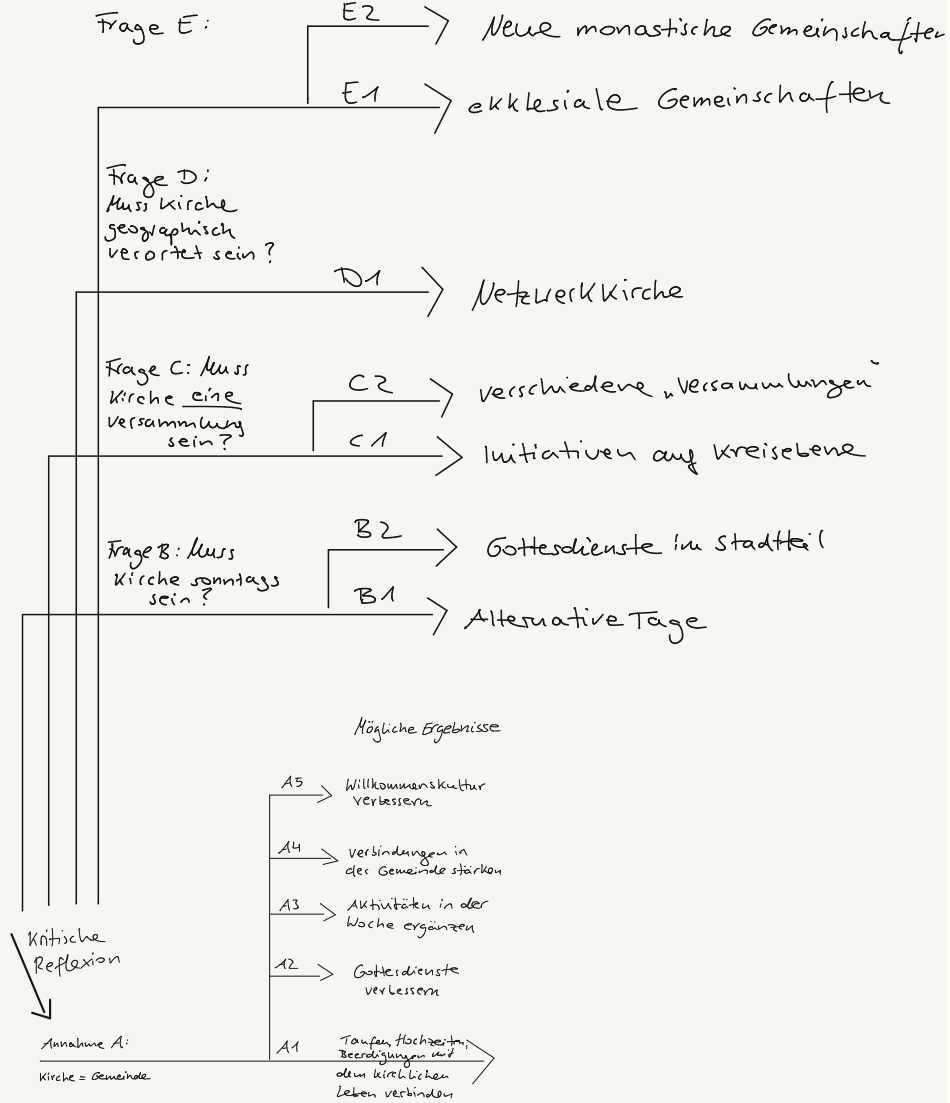 Frage E:
E2
Neue monastische Gemeinschaften
E1
ekklesiale Gemeinschaften
Frage D:
Muss Kirche
geographisch
verortet sein?
D1
Netzwerkkirche
Frage C: Muss
Kirche eine
Versammlung
sein?
C2
verschiedene „Versammlungen“
C1
Initiativen auf Kreisebene
Frage B: Muss
Kirche sonntags
sein?
B2
Gottesdienste im Stadtteil
B1
Alternative Tage
Mögliche Ergebnisse
A5
Willkommenskultur
verbessern
A4
Verbindungen in
der Gemeinde stärken
A3
Aktivitäten in der
Woche ergänzen
A2
Gottesdienste
verbessern
Kritische
Reflexion
Annahme A:
Kirche = Gemeinde
A1
Taufen, Hochzeiten,
Beerdigungen mit
dem kirchlichen
Leben verbinden